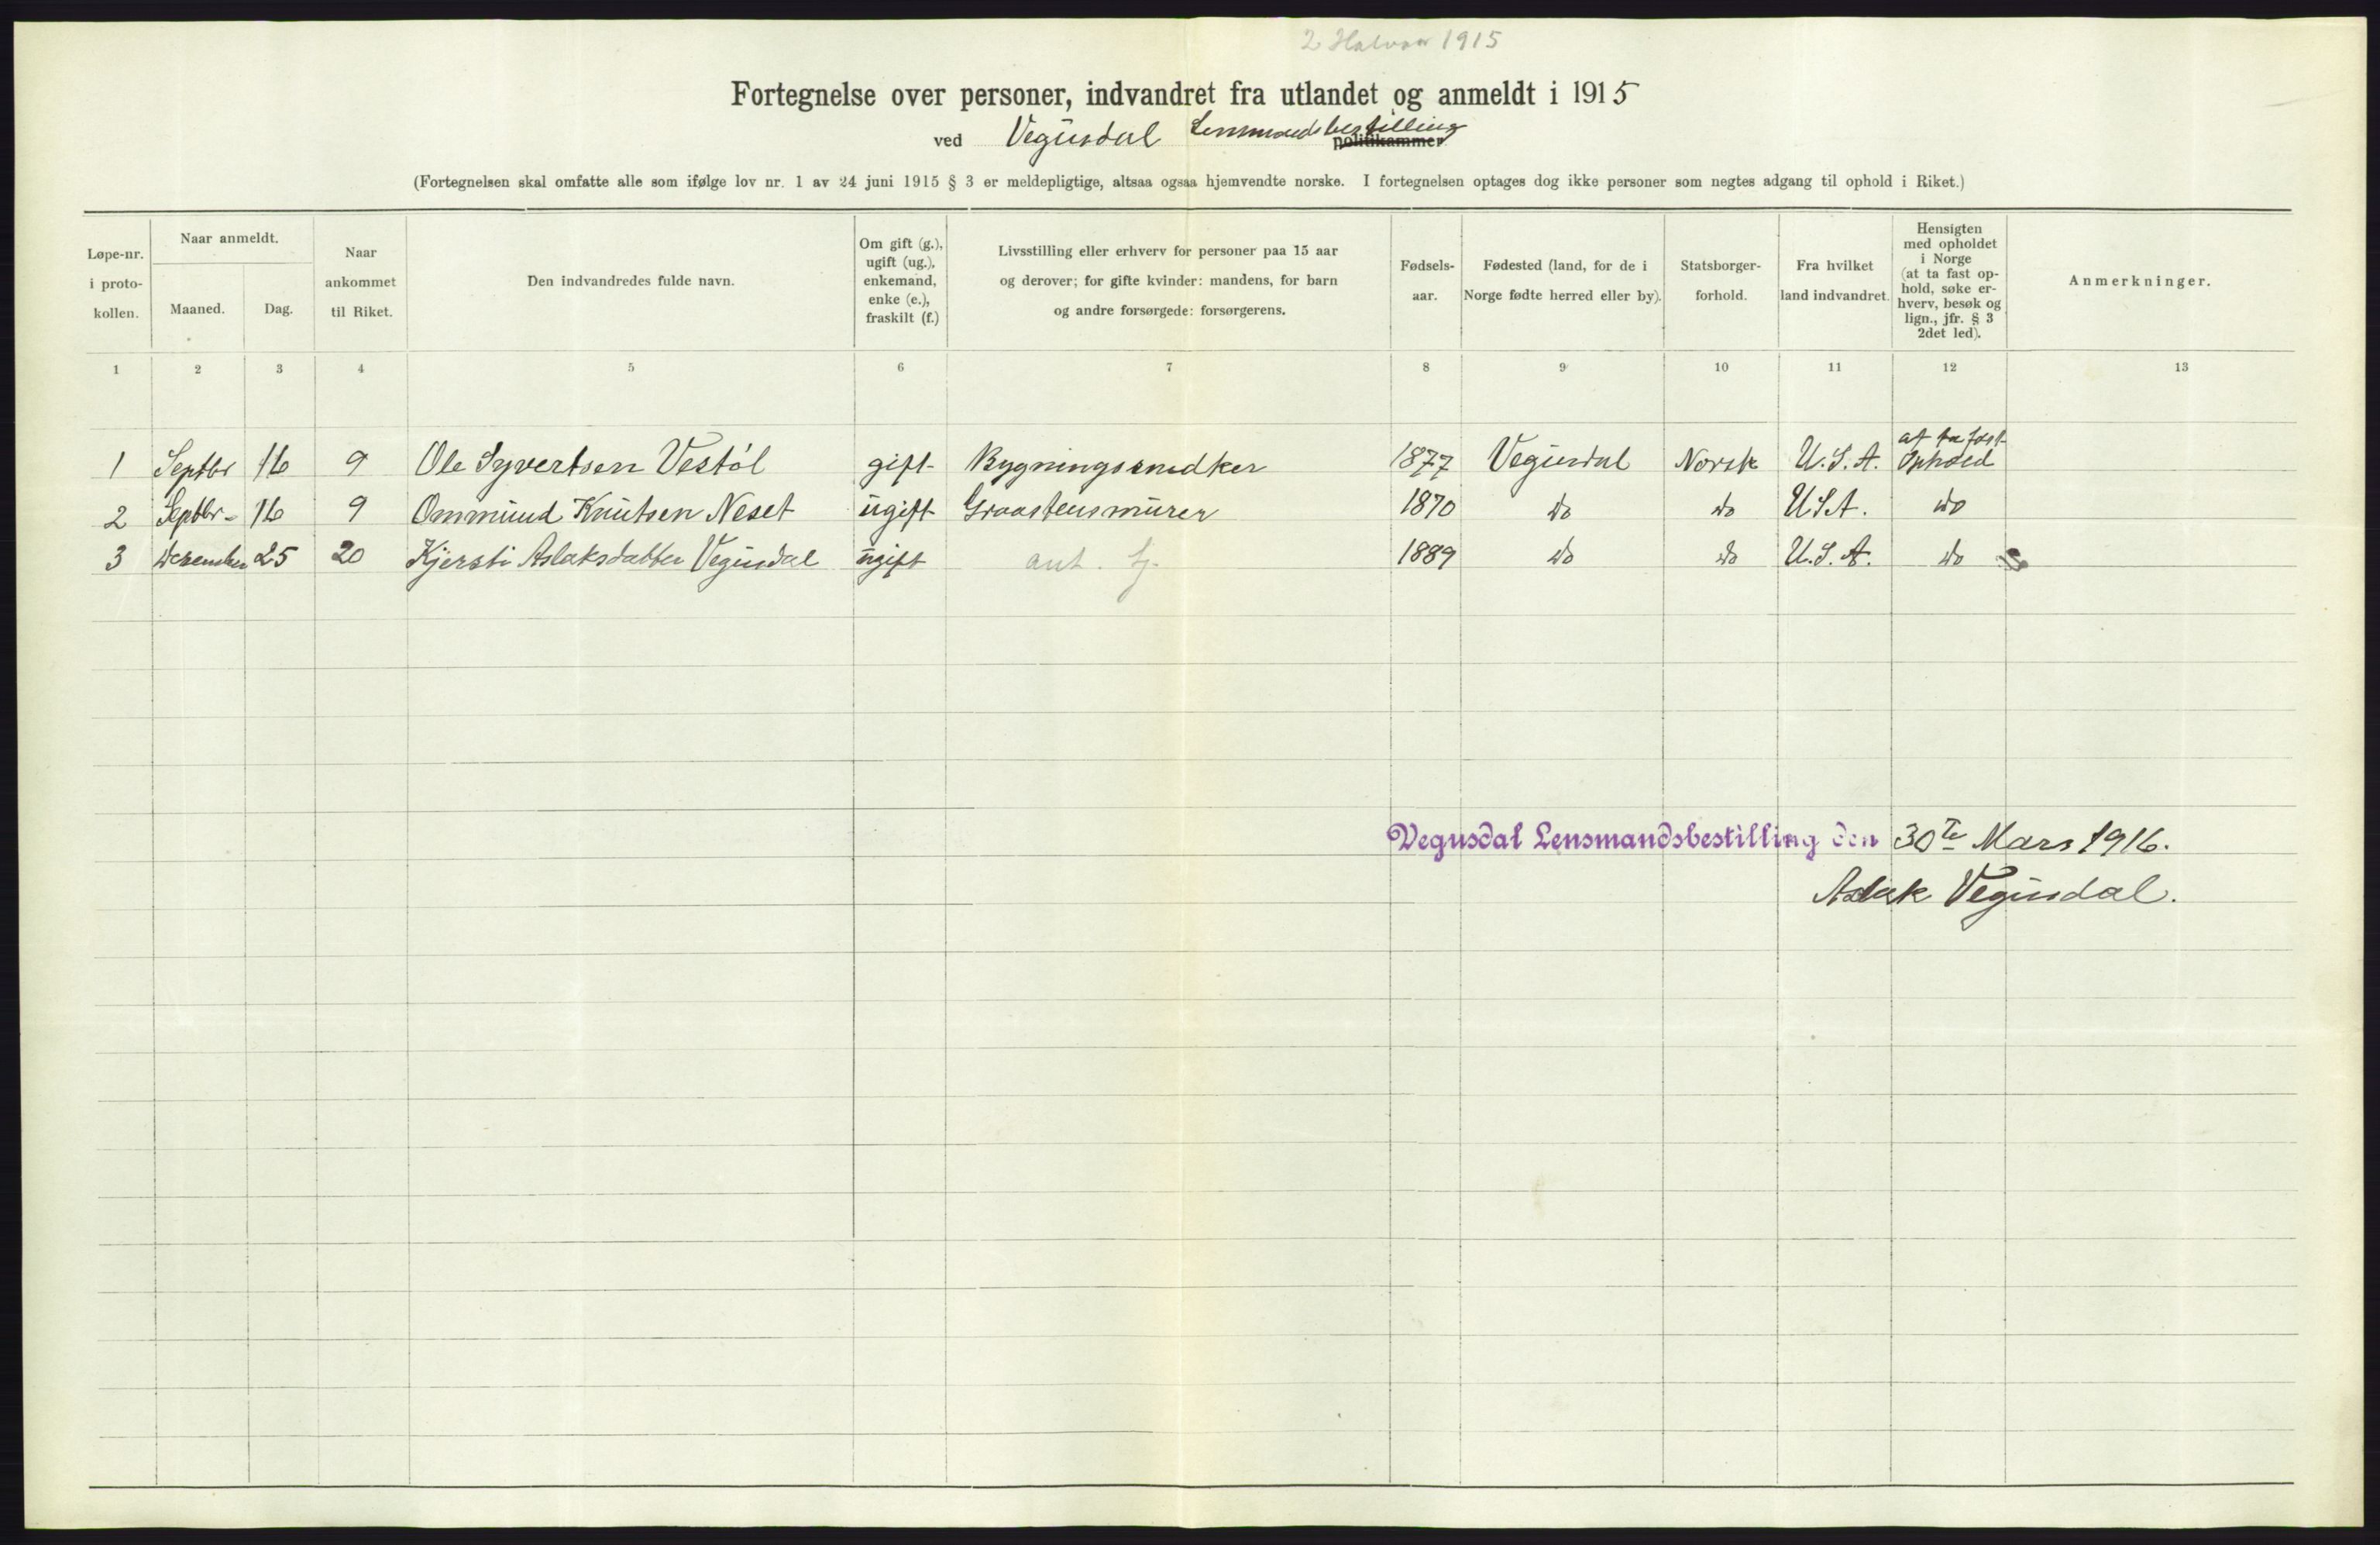 2 Halvaar 1915
Fortegnelse over personer, indvandret fra utlandet og anmeldt i 1915
ved Vegusdal Lensmandsbestilling politikammer
(Fortegnelsen skal omfatte alle som ifølge lov nr. 1 av 24 juni 1915 § 3 er meldepligtige, altsaa ogsaa hjemvendte norske. I fortegnelsen optages dog ikke personer som negtes adgang til ophold i Riket.)
Løpe-nr.
i proto-
kollen.
Naar anmeldt.
Maaned.
Dag.
Naar
ankommet
til Riket.
Den indvandredes fulde navn.
Om gift (g.),
ugift (ug.),
enkemand,
enke (e.),
fraskilt (f.)
Livsstilling eller erhverv for personer paa 15 aar
og derover; for gifte kvinder: mandens, for barn
og andre forsørgede: forsørgerens.
Fødsels-
aar.
Fødested (land, for de i
Norge fødte herred eller by).
Statsborger-
forhold.
Fra hvilket
land indvandret.
Hensigten
med opholdet
i Norge
(at ta fast op-
hold, søke er-
hverv, besøk og
lign., jfr. § 3
2det led).
Anmerkninger.
1 2 3 4 5 6 7 8 9 10 11 12 13
1 Septbr 16 9 Ole Syvertsen Vestöl gift Bygningssnedker 1877 Vegusdal Norsk U.S.A. at ta fast
Ophold
2 Septbr- 16 9 Ommund Knutsen Neset ugift Graastensmurer 1870 do do USA. do
3 Desember 25 20 Kjersti Aslaksdatter Vegusdal ugift ant. tj. 1889 do do U.S.A. do
Vegusdal Lensmandsbestilling den 30te Mars 1916.
Aslak Vegusdal.